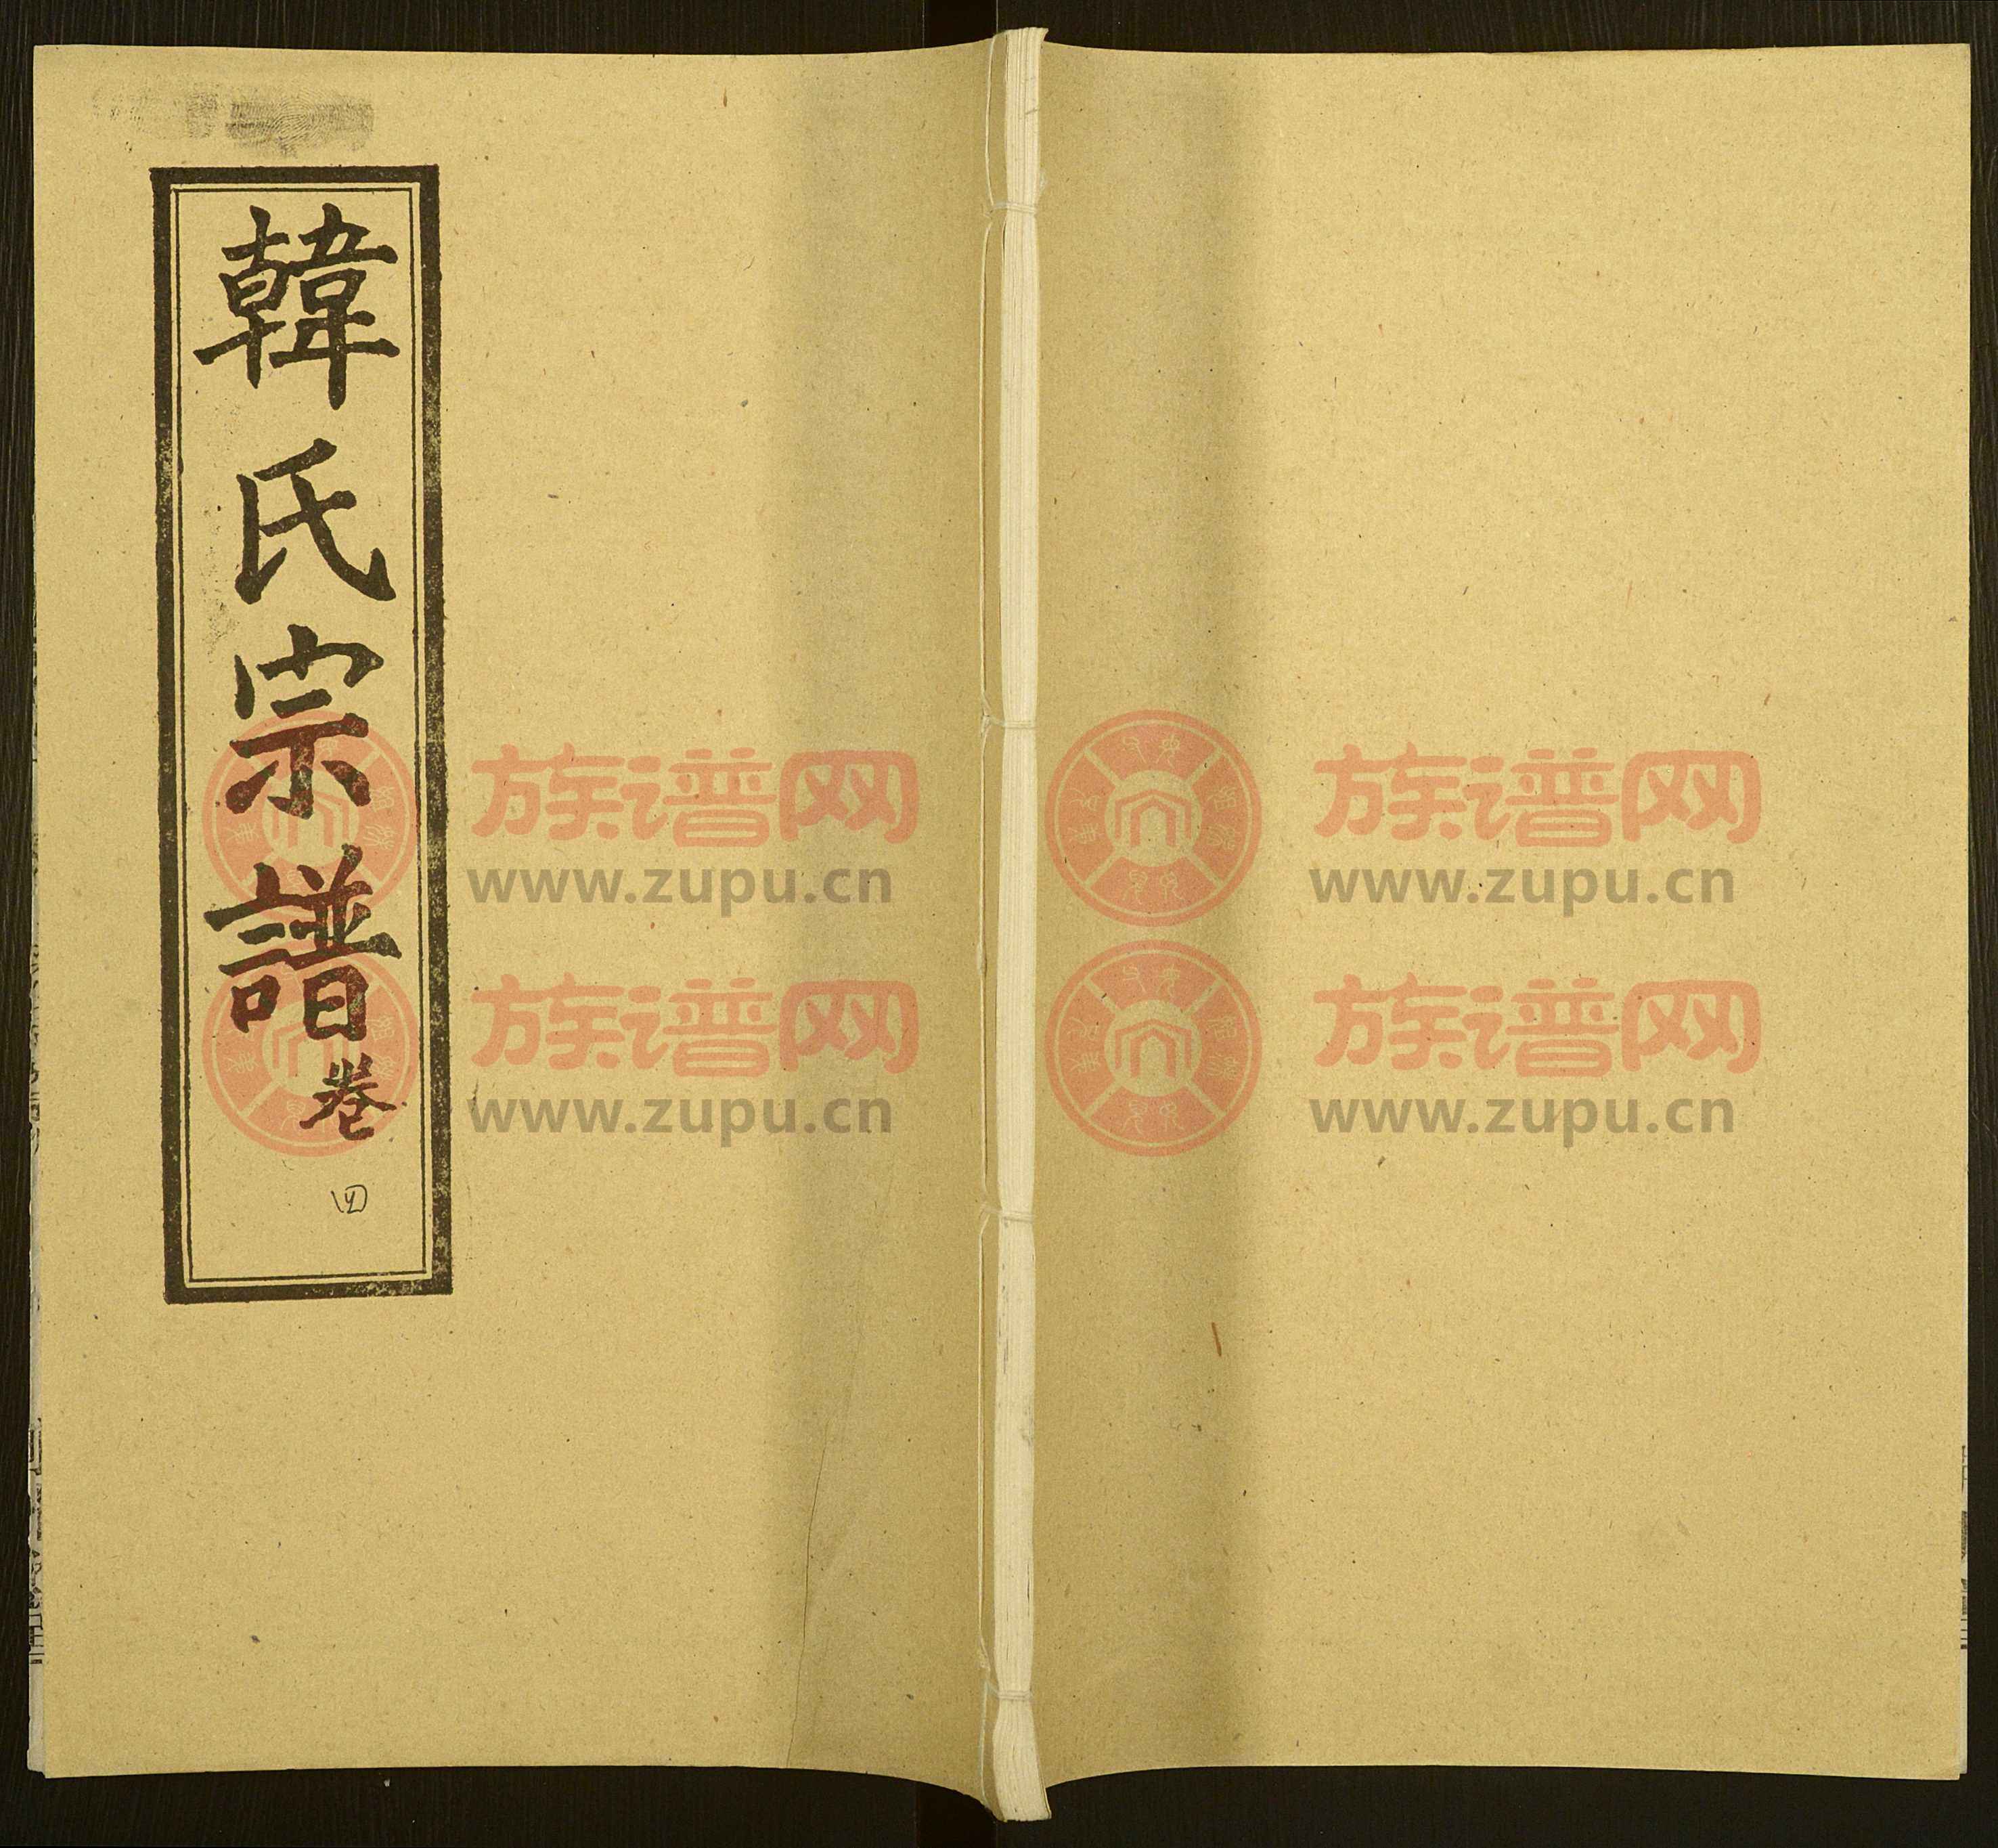 韓氏宗譜卷
四
族谱网 族谱网
www.zupu.cn www.zupu.cn
族谱网 族谱网
www.zupu.cn www.zupu.cn